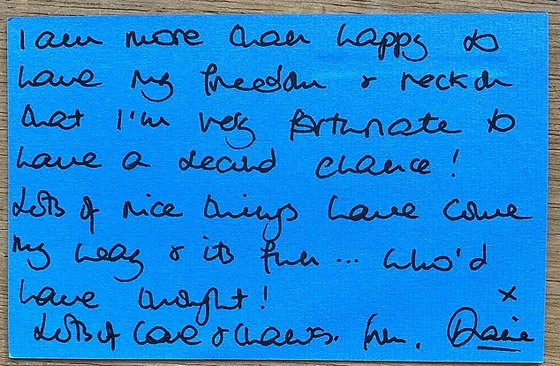 I am more than happy to
have my freedom & reckon
that I'm very fortunate to
have a second chance!
Lots of nice things have come
my way & its fun ... who'd
have thought! x
Lots of love & thanks. from.